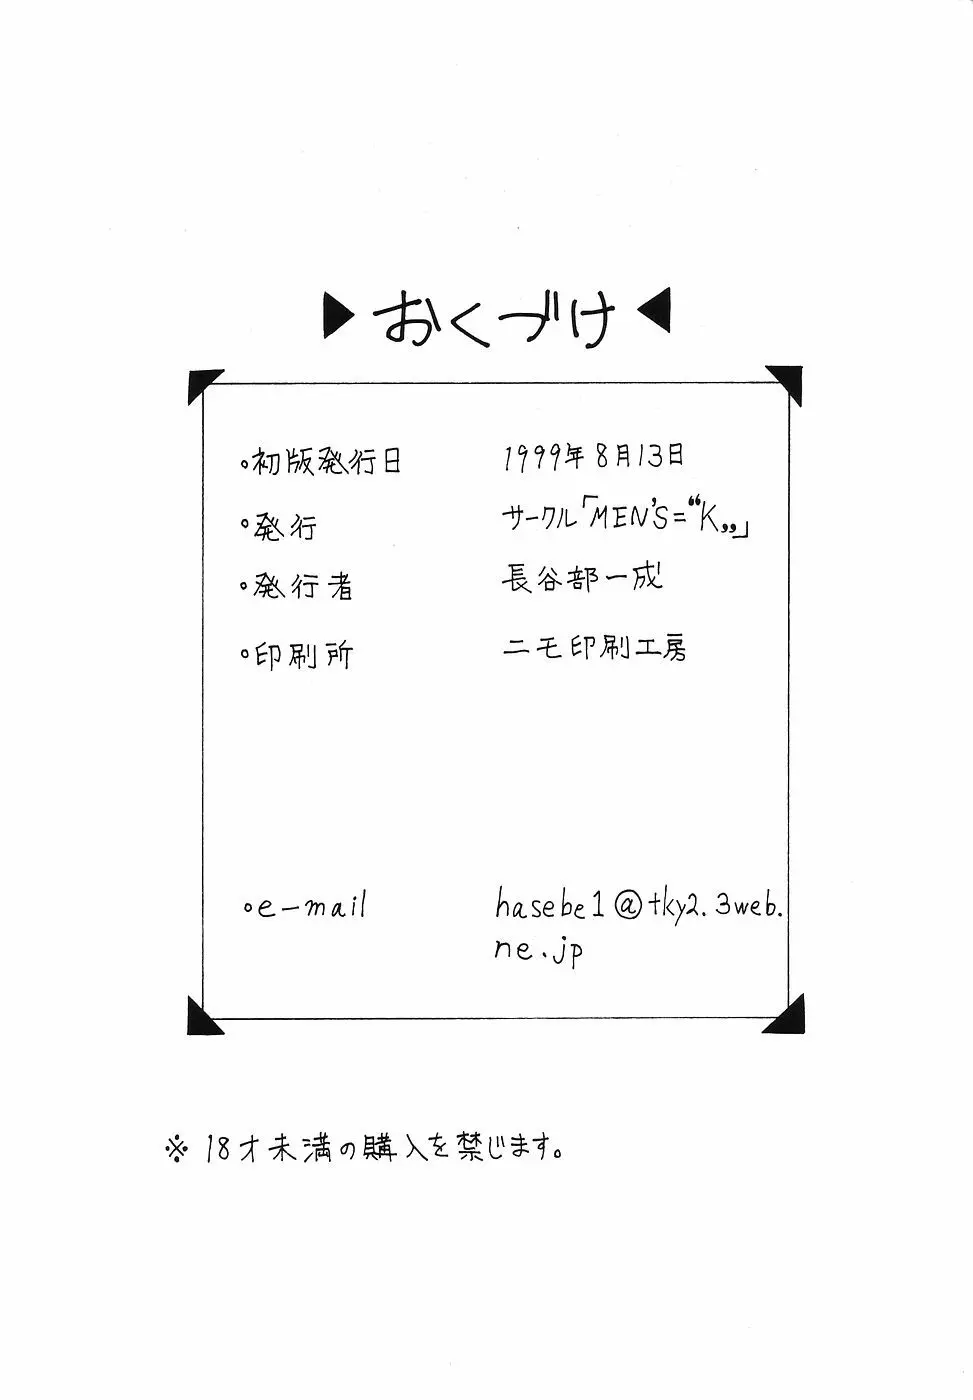 ▶おくづけ◀
・初版発行日 1999年8月13日
・発行 サークル「MEN'S=“K„」
・発行者 長谷部一成
・印刷所 ニモ印刷工房
・e-mail hasebe1@tky2.3web.
ne.jp
※18才未満の購入を禁じます。